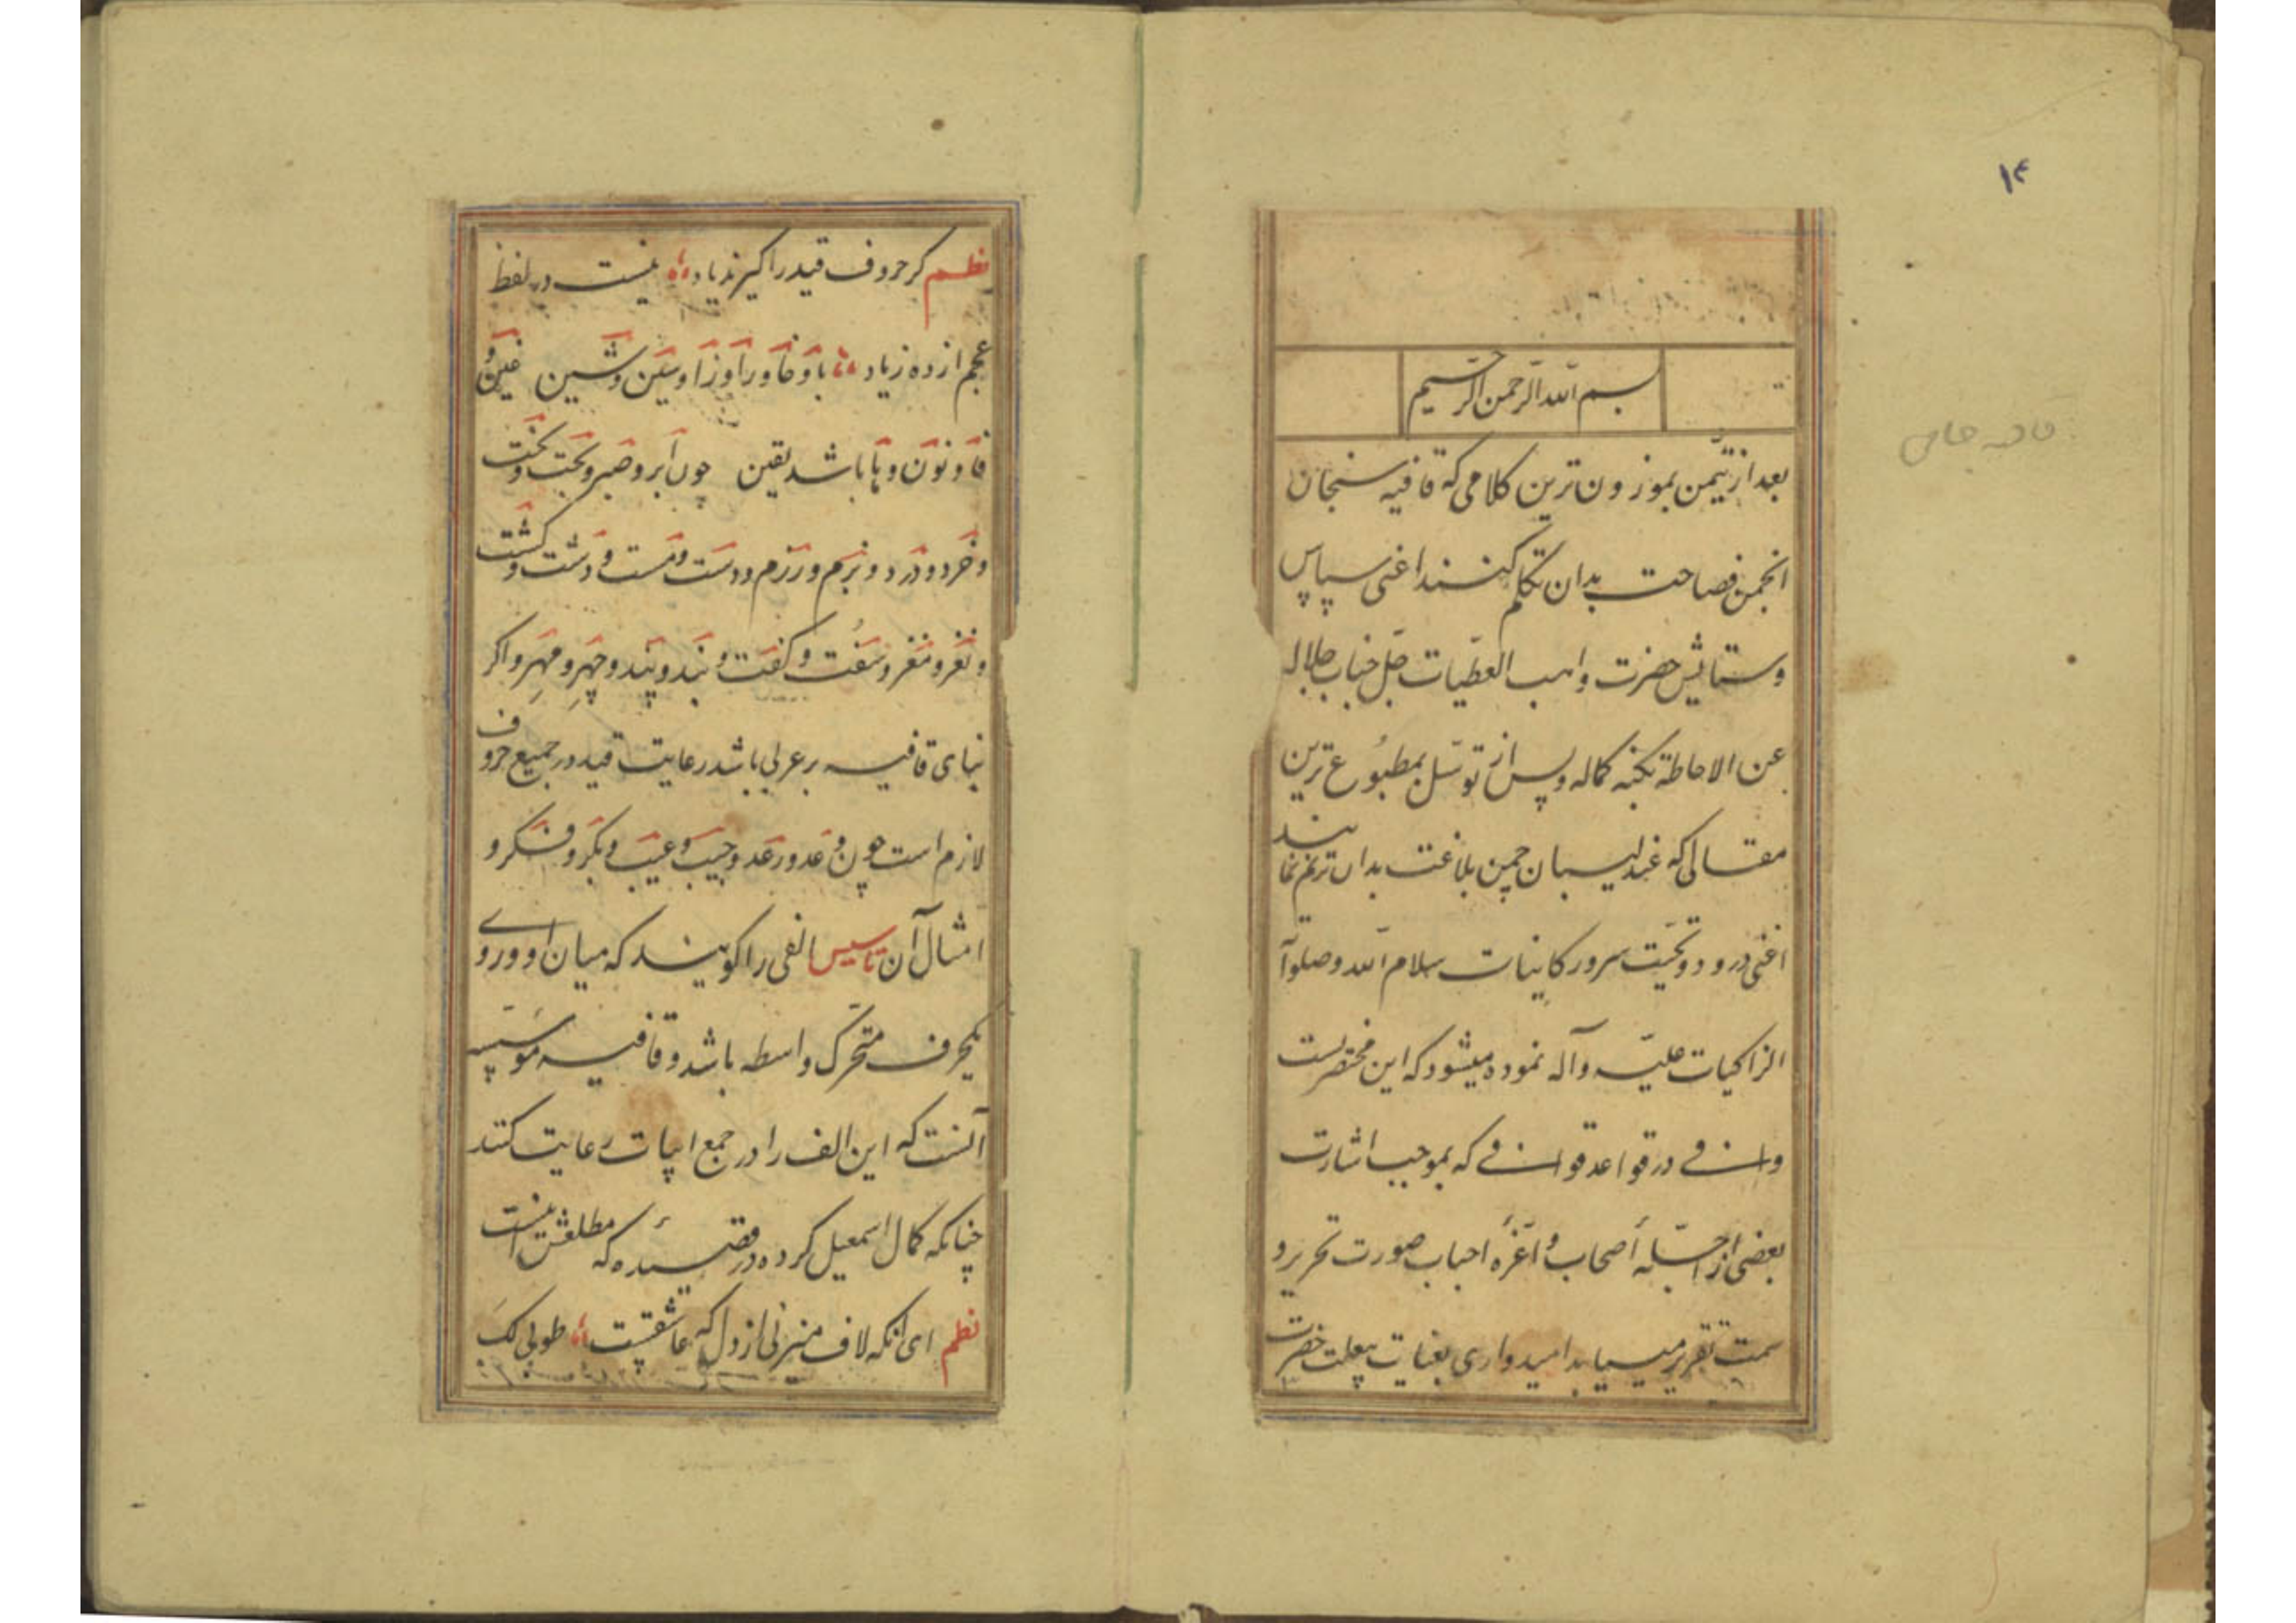 ۱۴
قافیه جامی
بسم الله الرحمن الرحیم
بعد از تیمن بموزون ترین کلامی که قافیه سنجان
انجمن فصاحت بدان تکلم کنند اعنی سپاس
وستایش حضرت واهب العطیات جل جناب جلاله
عن الاحاطة بکنه کماله وپس از توسل بمطبوع ترین
مقالی که عندلیبان چمن بلاغت بدان ترنم نمایند
اعنی درود وتحیت سرور کاینات سلام الله وصلواة
الزاکیات علیه وآله نموده میشود که این مختصریست
وافی در قواعد قوافی که بموجب اشارت
بعضی از اجلهٔ أصحاب واعزه احباب صورت تحریر و
سمت تقریر مییابد امیدواری بغنایت بیعلت حضرت
نظم کر حروف قید را کیری زیاد نیست در لفظ
عجم از ده زیاد با وخا ورا وزا وسین وشین غین و
فا ونون وها باشد یقین چون ابر وصبر وبخت وتخت
وخرد ودرد وبزم ورزم ودست ومست ودشت وکشت
ونغز ومغز وسفت وکفت وبند وپند وچهر ومهر واکر
بنای قافیه بر عربی باشد رعایت قید در جمیع حروف
لازم است چون وعد ورعد وجیب وعیب وبکر وفکر و
امثال آن تاسیس الفی را کویند که میان او وروی
یکحرف متحرک واسطه باشد وقافیه موسسه
آنست که این الف را در جمع ابیات رعایت کنند
چنانکه کمال اسمعیل کرده در قصیدهٔ که مطلعش اینست
نظم ای آنکه لاف میزنی از دل که عاشقست طوبی لک